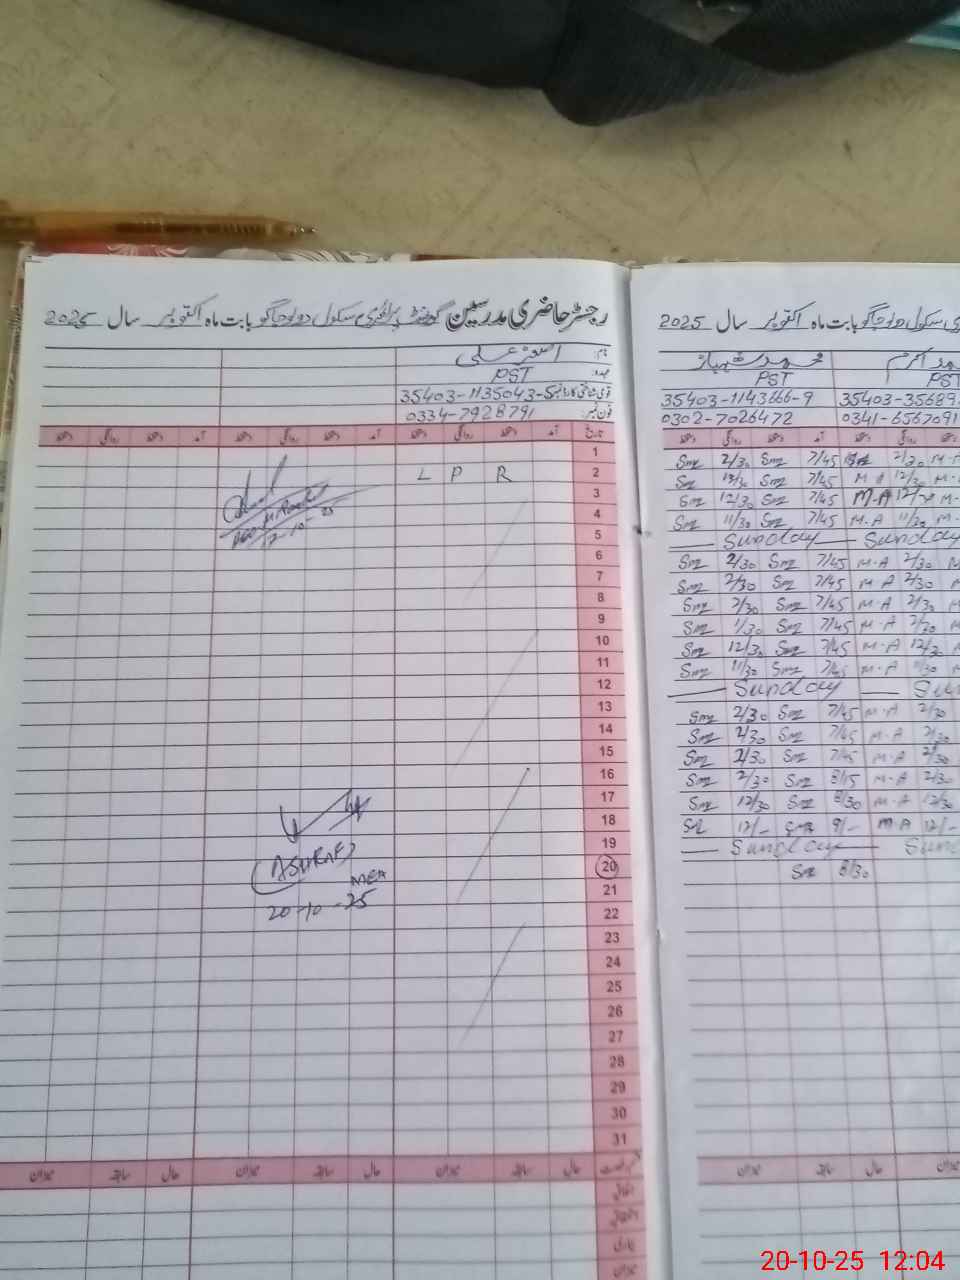 رجسٹر حاضری مدرسین گورنمنٹ پرائمری سکول بابت ماہ اکتوبر سال 2025
نام: اصغر علی
عہدہ: PST
قومی شناختی کارڈ نمبر: 35403-1135043-5
فون نمبر: 0334-7928791
تاریخ آمد دستخط روانگی دستخط آمد دستخط روانگی دستخط آمد دستخط روانگی دستخط
1
2
L P R
3
4
5
12-10-25
6
7
8
9
10
11
12
13
14
15
16
17
18
19
20
(ASHRAF)
MEA
20-10-25
21
22
23
24
25
26
27
28
29
30
31
حال سابقہ میزان حال سابقہ میزان حال سابقہ میزان
اتفاقی
میزان
سکول بابت ماہ اکتوبر سال 2025
محمد شہباز
PST PST
35403-1143666-9 35403-35689
0302-7026472 0341-6567091
دستخط روانگی دستخط آمد دستخط روانگی دستخط
Smz 2/30 Smz 7/45 2/30 M-A
Smz 12/30 Smz 7/45 M-A 12/30 M-
Smz 12/30 Smz 7/45 M-A 12/30 M-
Smz 11/30 Smz 7/45 M-A 11/30 M-
Sunday Sunday
Smz 2/30 Smz 7/45 M-A 2/30 M
Smz 2/30 Smz 7/45 M-A 2/30 M
Smz 2/30 Smz 7/45 M-A 2/30 M
Smz 1/30 Smz 7/45 M-A 2/30 M
Smz 12/30 Smz 7/45 M-A 12/30 M
Smz 11/30 Smz 7/45 M-A 11/30 M
Sunday Sun
Smz 2/30 Smz 7/45 M-A 2/30
Smz 2/30 Smz 7/45 M-A 2/30
Smz 2/30 Smz 7/45 M-A 2/30
Smz 2/30 Smz 8/15 M-A 2/30
Smz 12/30 Smz 8/30 M-A 12/30
Smz 12/- Smz 9/- M-A 12/-
Sunday Sund
Smz 8/30
میزان سابقہ حال میزان
20-10-25 12:04